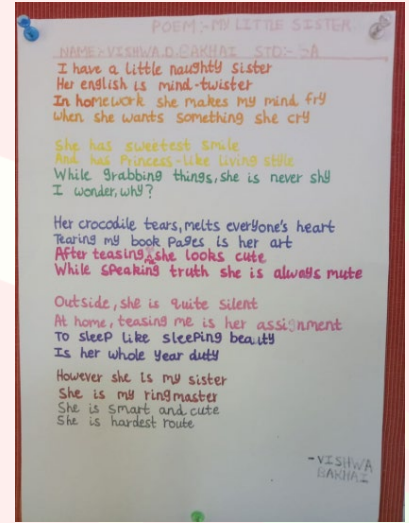 POEM:-MY LITTLE SISTER
NAME:-VISHWA.D.BAKHAI STD:- -A
I have a little naughty sister
Her english is mind-twister
In homework she makes my mind fry
when she wants something she cry
She has sweetest smile
And has Princess-like living style
While grabbing things, she is never shy
I wonder, why?
Her crocodile tears, melts everyone's heart
Tearing my book pages is her art
After teasing she looks cute
While speaking truth she is always mute
Outside, she is quite silent
At home, teasing me is her assignment
To sleep like sleeping beauty
Is her whole year duty
However she is my sister
She is my ringmaster
She is smart and cute
She is hardest route
-VISHWA
BAKHAI